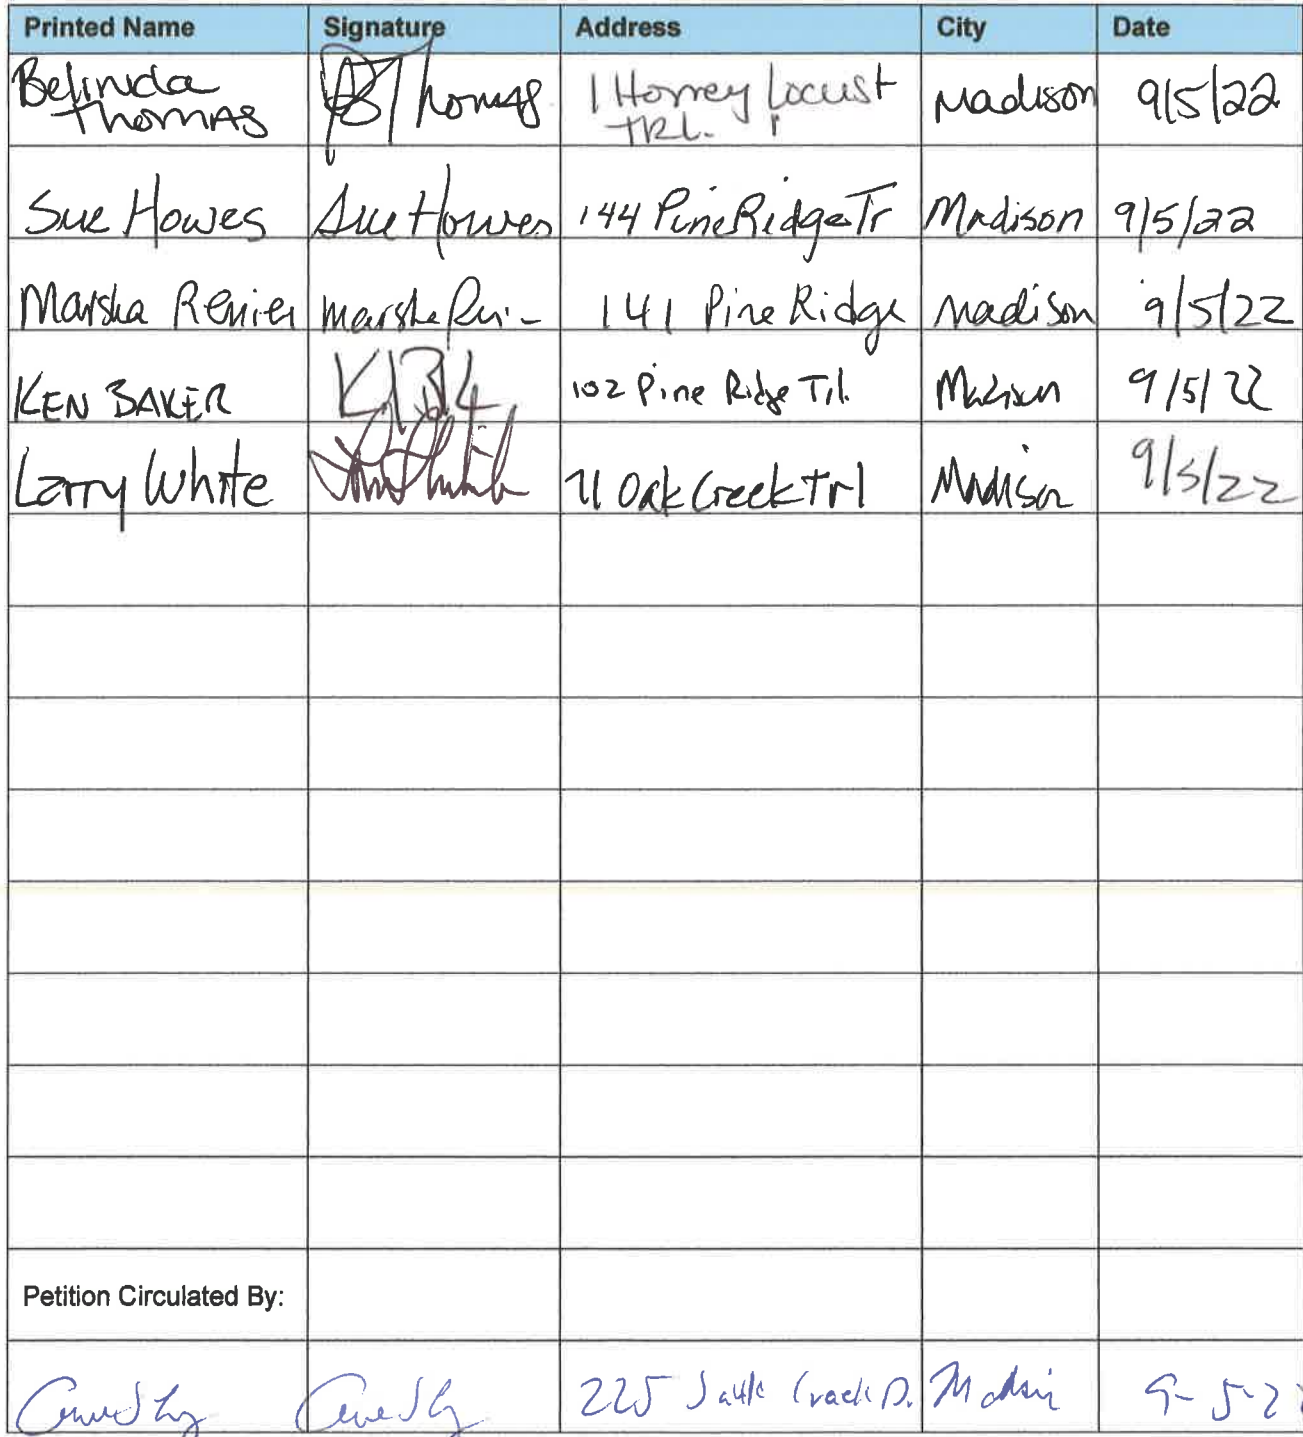 Printed Name Signature Address City Date
Belinda Thomas Thomas 1 Honey Locust TRL. Madison 9/5/22
Sue Howes Sue Howes 144 Pine Ridge Tr Madison 9/5/22
Marsha Renier Marsha 141 Pine Ridge Madison 9/5/22
KEN BAKER 102 Pine Ridge Trl. Madison 9/5/22
Larry White 71 Oak Creek Trl Madison 9/5/22
Petition Circulated By:
225 Sauk Creek D. Madison 9-5-22